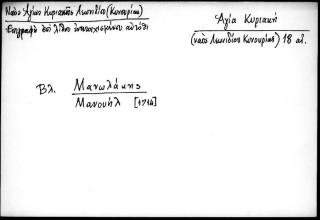 Ναός Αγίας Κυριακής Λεωνιδίου (Κυνουρίας)
Επιγραφή επί λίθου εντοιχισμένου αυτόθι
Αγία Κυριακή
(ναός Λεωνιδίου Κυνουρίας) 18 αι.
Βλ. Μανωλάκης
Μανουήλ [1714]